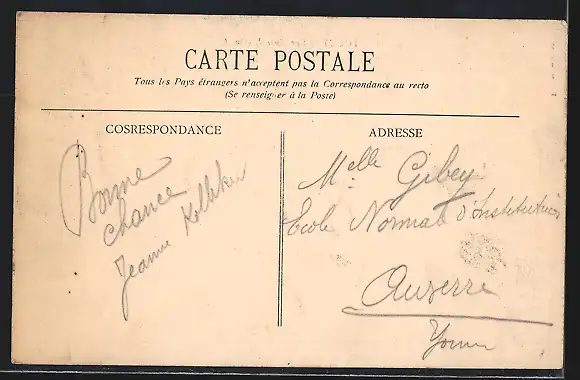 CARTE POSTALE
Tous les Pays étrangers n'acceptent pas la Correspondance au recto
(Se renseigner à la Poste)
COSRESPONDANCE
ADRESSE
Bonne
chance
Jeanne
Melle Gibey
Ecole Normale d'Institutrices
Auxerre
Yonne